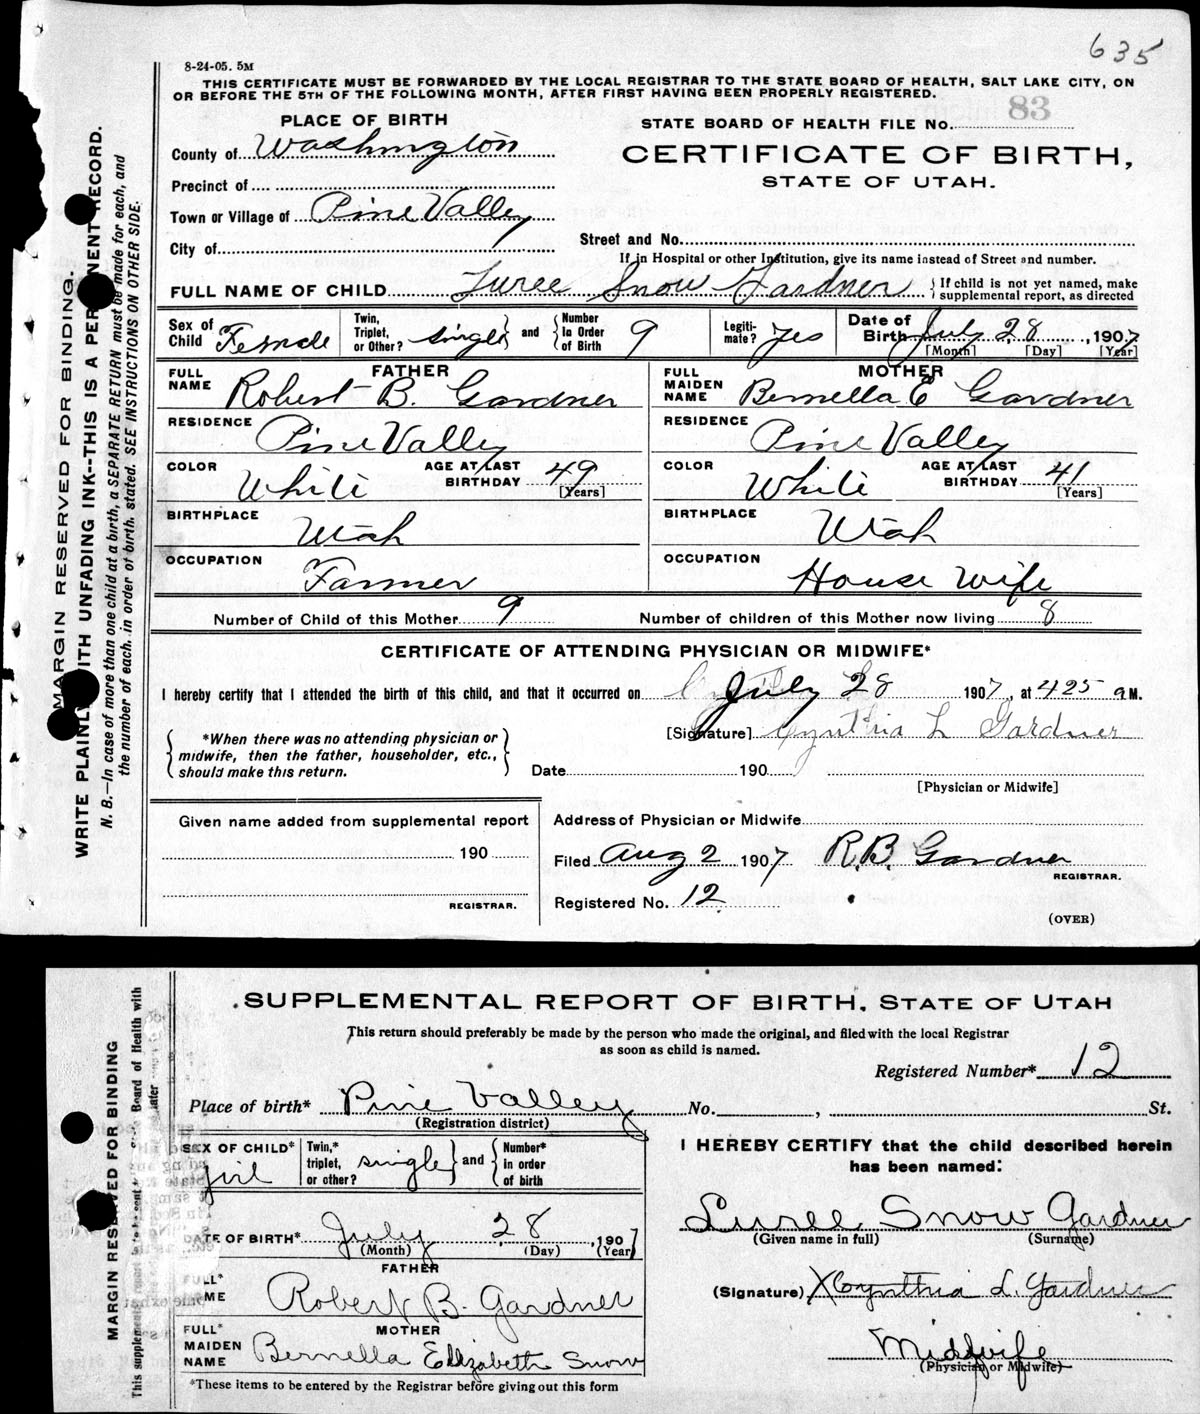 635
8-24-05. 5M
THIS CERTIFICATE MUST BE FORWARDED BY THE LOCAL REGISTRAR TO THE STATE BOARD OF HEALTH, SALT LAKE CITY, ON
OR BEFORE THE 5TH OF THE FOLLOWING MONTH, AFTER FIRST HAVING BEEN PROPERLY REGISTERED.
PLACE OF BIRTH
STATE BOARD OF HEALTH FILE No. 83
County of Washington
CERTIFICATE OF BIRTH,
STATE OF UTAH.
Precinct of
Town or Village of Pine Valley
City of
Street and No.
If in Hospital or other Institution, give its name instead of Street and number.
FULL NAME OF CHILD Luree Snow Gardner { If child is not yet named, make supplemental report, as directed
Sex of Child Female Twin, Triplet, or Other? single } and { Number in Order of Birth 9 Legitimate? Yes Date of Birth July 28, 1907
[Month] [Day] [Year]
FATHER
FULL NAME Robert B. Gardner
RESIDENCE Pine Valley
COLOR White AGE AT LAST BIRTHDAY 49 [Years]
BIRTHPLACE Utah
OCCUPATION Farmer
MOTHER
FULL MAIDEN NAME Bernella E Gardner
RESIDENCE Pine Valley
COLOR White AGE AT LAST BIRTHDAY 41 [Years]
BIRTHPLACE Utah
OCCUPATION House Wife
Number of Child of this Mother 9 Number of children of this Mother now living 8
CERTIFICATE OF ATTENDING PHYSICIAN OR MIDWIFE*
I hereby certify that I attended the birth of this child, and that it occurred on July 28 1907, at 425 a M.
[Signature] Cynthia L Gardner
{ *When there was no attending physician or
midwife, then the father, householder, etc.,
should make this return. }
Date 190
[Physician or Midwife]
Given name added from supplemental report
190
REGISTRAR.
Address of Physician or Midwife
Filed Aug 2 1907 R.B. Gardner
REGISTRAR.
Registered No. 12
(OVER)
MARGIN RESERVED FOR BINDING.
WRITE PLAINLY WITH UNFADING INK--THIS IS A PERMANENT RECORD.
N. B.—In case of more than one child at a birth, a SEPARATE RETURN must be made for each, and
the number of each, in order of birth, stated. SEE INSTRUCTIONS ON OTHER SIDE.
SUPPLEMENTAL REPORT OF BIRTH, STATE OF UTAH
This return should preferably be made by the person who made the original, and filed with the local Registrar
as soon as child is named.
Registered Number* 12
Place of birth* Pine Valley No. , St.
(Registration district)
SEX OF CHILD* girl Twin,* triplet, or other? single } and { Number* in order of birth
DATE OF BIRTH* July 28, 1907
(Month) (Day) (Year)
FATHER
FULL* NAME Robert B. Gardner
MOTHER
FULL* MAIDEN NAME Bernella Elizabeth Snow
*These items to be entered by the Registrar before giving out this form
I HEREBY CERTIFY that the child described herein
has been named:
Luree Snow Gardner
(Given name in full) (Surname)
(Signature) X Cynthia L. Gardner
Midwife
(Physician or Midwife)
MARGIN RESERVED FOR BINDING
Board of Health with